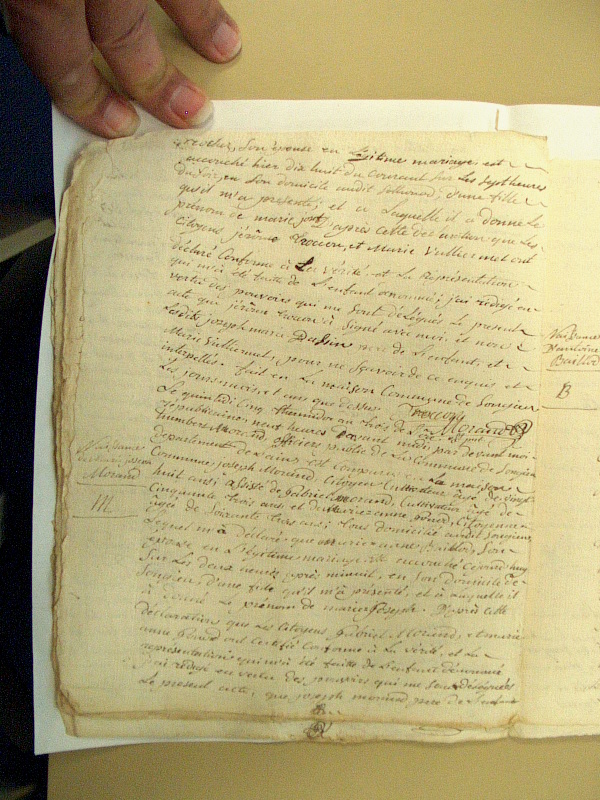 son épouse en Légitime mariage est
accouchée hier dix huit du courant sur les sept heures
du soir, en son domicile audit, d'une fille
qu'il m'a présenté, et a Laquelle il a donné le
prénom de marie D'après cette déclaration que Les
Citoyens jérôme et Marie Vulliermet ont
déclaré Conforme à La vérité et La Représentation
qui m'a été faite de L'enfant dénommé; j'ai rédigé en
vertu des pouvoirs qui me sont délégués Le présent
acte que jérôme à Signé avec moi et non
Ledit joseph marie père de L'enfant, et
Marie Vulliermet, pour ne Sçavoir de ce enquis et
interpellés. fait en La maison Commune de Songieu
Les jour mois et ans que dessus.
Morand
Le quintidi Cinq Thermidor an trois de La
républicaine, neuf heures Devant midi, par devant moi
humbert Morand, officier public de La Commune de Songieu
departement de L'ains, est Comparu en La maison
Commune joseph Morand, Citoyen Cultivateur âgé de vingt
huit ans assisté de Gabriel Morand, Cultivateur âgé de
Cinquante trois ans et de marie anne, Citoyenne
âgée de Soixante trois ans tous domiciliés audit Songieu,
Lequel m'à déclaré que marie Son
épouse en Légitime mariage est accouché Cejourd'huy
Sur Les deux heures après minuit, en Son domicile de
Songieu, D'une fille qu'il m'a présenté, et à Laquelle il
à donné Le prénom de marie Joseph. D'après cette
déclaration que Les Citoyens Gabriel Morand, et marie
anne ont Certifié Conforme à La vérité, et La
représentation qui m'a été faitte de L'enfant dénommé
j'ai rédigé en vertu des pouvoirs qui me sont délégués
Le présent acte, que joseph morand père de L'enfant
Naissance
de marie joseph
Morand
M
Naissance
D'antoine
B